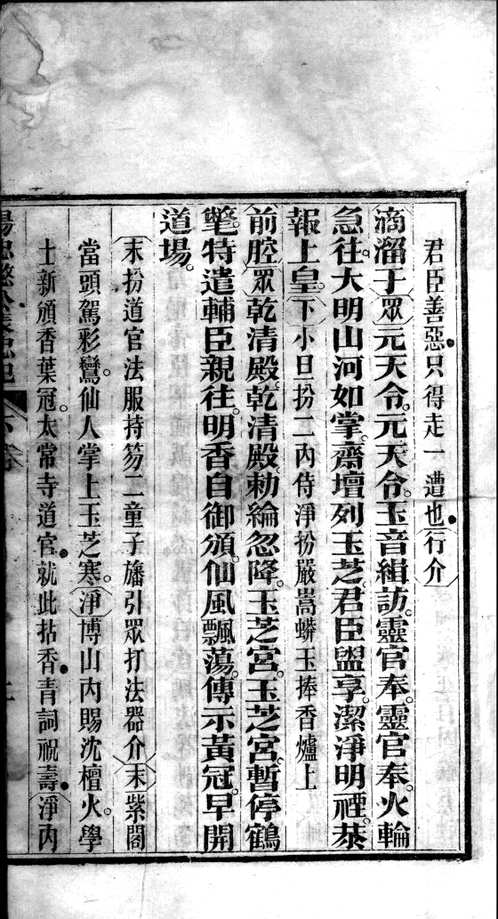 君臣善惡只得走一遭也行介
滴溜子衆元天令元天令玉音緝訪靈官奉靈官奉火輪
急往大明山河如掌齋壇列玉芝君臣盥享潔淨明禋恭
報上皇下小旦扮二內侍淨扮嚴嵩蟒玉捧香爐上
前腔衆乾清殿乾清殿勅綸忽降玉芝宮玉芝宮暫停鶴
氅特遣輔臣親往明香自御頒仙風飄蕩傳示黃冠早開
道場
末扮道官法服持笏二童子旛引衆打法器介末紫閣
當頭駕彩鸞仙人掌上玉芝寒淨博山內賜沈檀火學
士新頒香葉冠太常寺道官就此拈香青詞祝壽淨內